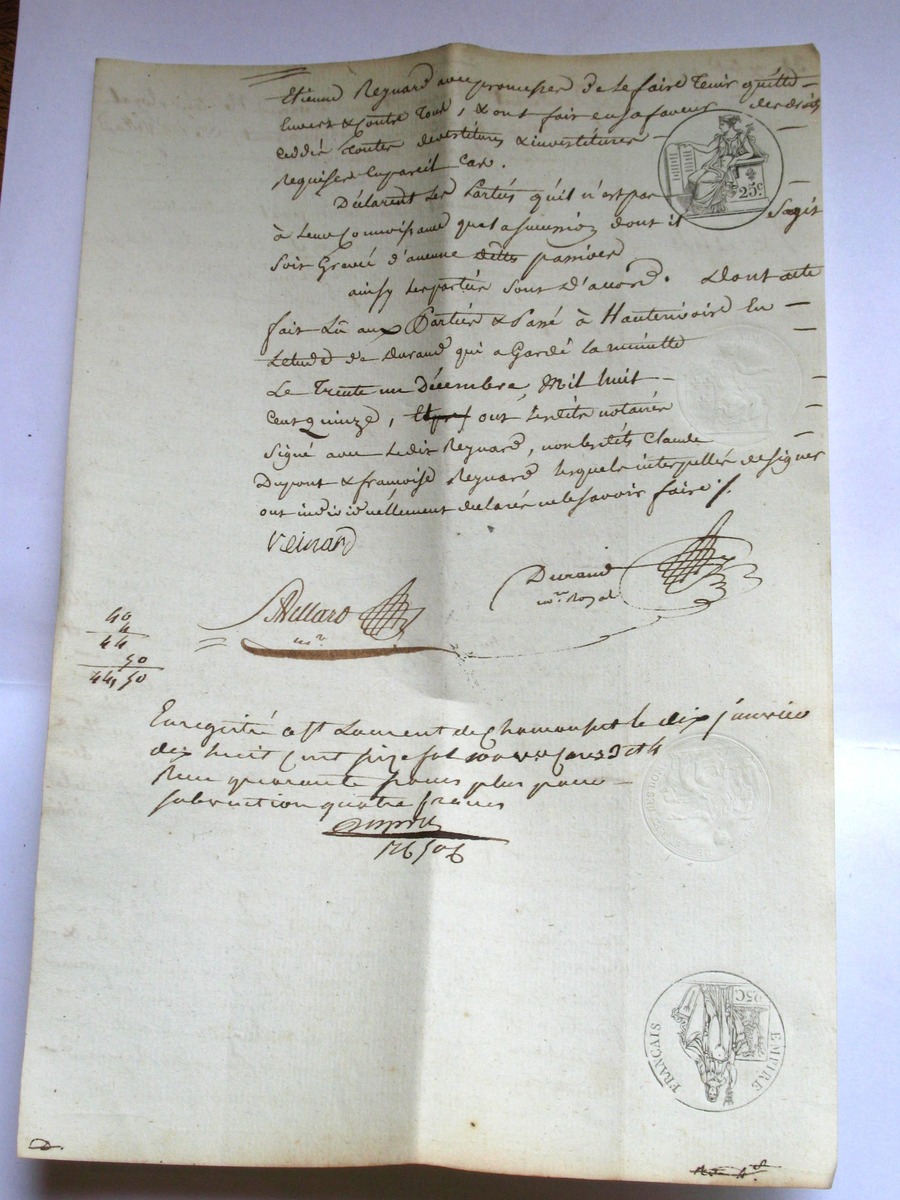 Etienne Reynard avec promesse de le faire tenir quitte
Envers & Contre Tous, & ont fait en sa faveur des droits
Ceddés toutes devestitures & investitures
Requises en pareil Cas.
25c
Déclarent les Parties qu'il n'est pas
à leur Connoissance que la succession dont il Sagit
Soit Grevée d'aucune dettes passives
ainsy les parties sont D'accord. Dont acte
fait Lû aux Parties & Passé à Hauterivoire En
Letude de Durand qui a Gardé la minutte
Le Trente un Décembre, Mil huit
Cent quinze, ont lesdits notaires
Signé avec ledit Reynard, non lesdits Claude
Dupont & francoise Reynard lesquels interpellés de signer
ont individuellement déclarés ne le savoir faire ./.
Reinard
Durand
nre. Royal
Villard
nre
40
4
44
50
44 50
Enregistré a St Laurent de Chamousset le dix janvier
dix huit cent seize fol
Reçu quarante francs plus pour
subvention quatre francs
25C
EMPIRE
FRANÇAIS